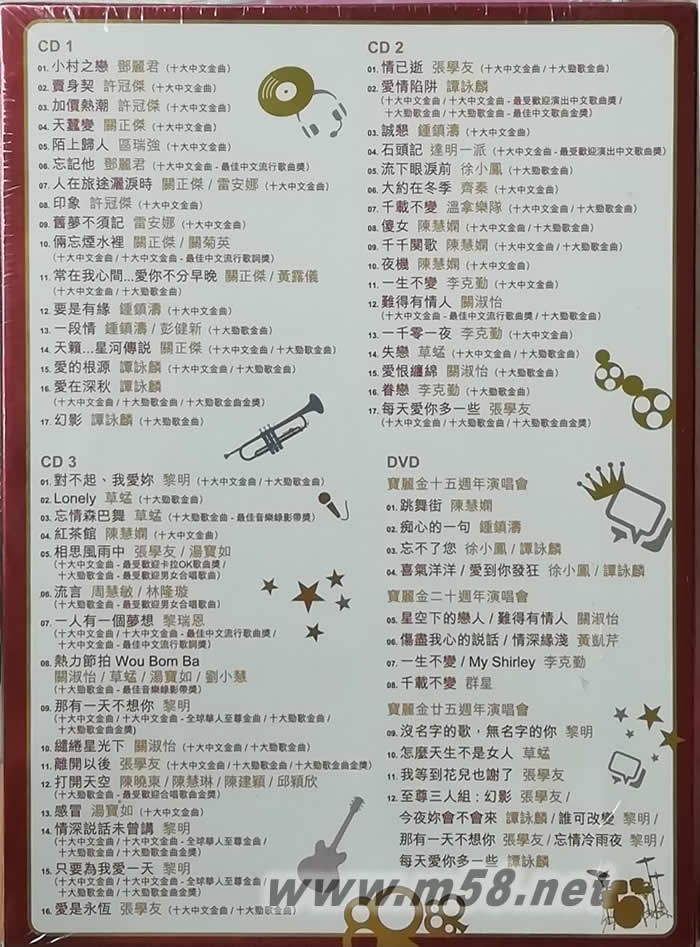 CD 1
01. 小村之戀 鄧麗君 (十大中文金曲)
02. 賣身契 許冠傑 (十大中文金曲)
03. 加價熱潮 許冠傑 (十大中文金曲)
04. 天蠶變 關正傑 (十大中文金曲)
05. 陌上歸人 區瑞強 (十大中文金曲)
06. 忘記他 鄧麗君 (十大中文金曲 - 最佳中文流行歌曲獎)
07. 人在旅途灑淚時 關正傑 / 雷安娜 (十大中文金曲)
08. 印象 許冠傑 (十大中文金曲)
09. 舊夢不須記 雷安娜 (十大中文金曲)
10. 倆忘煙水裡 關正傑 / 關菊英
(十大中文金曲 / 十大中文金曲 - 最佳中文流行歌詞獎)
11. 常在我心間...愛你不分早晚 關正傑 / 黃露儀
(十大中文金曲 / 十大勁歌金曲)
12. 要是有緣 鍾鎮濤 (十大中文金曲 / 十大勁歌金曲)
13. 一段情 鍾鎮濤 / 彭健新 (十大勁歌金曲)
14. 天籟...星河傳說 關正傑 (十大中文金曲 / 十大勁歌金曲)
15. 愛的根源 譚詠麟 (十大中文金曲 / 十大勁歌金曲)
16. 愛在深秋 譚詠麟
(十大中文金曲 / 十大勁歌金曲 / 十大勁歌金曲金獎)
17. 幻影 譚詠麟 (十大勁歌金曲)
CD 2
01. 情已逝 張學友 (十大中文金曲 / 十大勁歌金曲)
02. 愛情陷阱 譚詠麟
(十大中文金曲 / 十大中文金曲 - 最受歡迎演出中文歌曲獎 /
十大勁歌金曲 / 十大勁歌金曲 - 最佳中文歌曲金獎)
03. 誠懇 鍾鎮濤 (十大中文金曲)
04. 石頭記 達明一派 (十大中文金曲 - 最受歡迎演出中文歌曲獎)
05. 流下眼淚前 徐小鳳 (十大勁歌金曲)
06. 大約在冬季 齊秦 (十大中文金曲)
07. 千載不變 溫拿樂隊 (十大中文金曲 / 十大勁歌金曲)
08. 傻女 陳慧嫻 (十大中文金曲 / 十大勁歌金曲)
09. 千千闋歌 陳慧嫻 (十大中文金曲 / 十大勁歌金曲)
10. 夜機 陳慧嫻 (十大中文金曲)
11. 一生不變 李克勤 (十大中文金曲 / 十大勁歌金曲)
12. 難得有情人 關淑怡
(十大中文金曲 - 最佳中文流行歌曲獎 / 十大勁歌金曲)
13. 一千零一夜 李克勤 (十大中文金曲)
14. 失戀 草蜢 (十大中文金曲 / 十大勁歌金曲)
15. 愛恨纏綿 關淑怡 (十大勁歌金曲)
16. 眷戀 李克勤 (十大中文金曲)
17. 每天愛你多一些 張學友
(十大中文金曲 / 十大勁歌金曲 / 十大勁歌金曲金獎)
CD 3
01. 對不起、我愛妳 黎明 (十大中文金曲 / 十大勁歌金曲)
02. Lonely 草蜢 (十大勁歌金曲)
03. 忘情森巴舞 草蜢 (十大勁歌金曲 - 最佳音樂錄影帶獎)
04. 紅茶館 陳慧嫻 (十大中文金曲)
05. 相思風雨中 張學友 / 湯寶如
(十大中文金曲 - 最受歡迎卡拉OK歌曲獎 /
十大勁歌金曲 - 最受歡迎男女合唱歌曲)
06. 流言 周慧敏 / 林隆璇
(十大勁歌金曲 - 最受歡迎男女合唱歌曲)
07. 一人有一個夢想 黎瑞恩
(十大中文金曲 / 十大中文金曲 - 最佳中文流行歌曲獎 /
十大中文金曲 - 最佳中文流行歌詞獎)
08. 熱力節拍 Wou Bom Ba
關淑怡 / 草蜢 / 湯寶如 / 劉小慧
(十大勁歌金曲 - 最佳音樂錄影帶獎)
09. 那有一天不想你 黎明
(十大中文金曲 / 十大中文金曲 - 全球華人至尊金曲 / 十大勁歌金曲 /
十大勁歌金曲金獎)
10. 繾綣星光下 關淑怡 (十大中文金曲 / 十大勁歌金曲)
11. 離開以後 張學友 (十大中文金曲 / 十大勁歌金曲 / 十大勁歌金曲金獎)
12. 打開天空 陳曉東 / 陳慧琳 / 陳建穎 / 邱穎欣
(十大勁歌金曲 - 最受歡迎合唱歌曲金獎)
13. 感冒 湯寶如 (十大中文金曲)
14. 情深說話未曾講 黎明
(十大中文金曲 / 十大中文金曲 - 全球華人至尊金曲 /
十大勁歌金曲 / 十大勁歌金曲金獎)
15. 只要為我愛一天 黎明
(十大中文金曲 / 十大中文金曲 - 全球華人至尊金曲
十大勁歌金曲 / 十大勁歌金曲金獎)
16. 愛是永恆 張學友 (十大中文金曲 / 十大勁歌金曲 / 十大勁歌金曲金獎)
DVD
寶麗金十五週年演唱會
01. 跳舞街 陳慧嫻
02. 痴心的一句 鍾鎮濤
03. 忘不了您 徐小鳳 / 譚詠麟
04. 喜氣洋洋 / 愛到你發狂 徐小鳳 / 譚詠麟
寶麗金二十週年演唱會
05. 星空下的戀人 / 難得有情人 關淑怡
06. 傷盡我心的說話 / 情深緣淺 黃凱芹
07. 一生不變 / My Shirley 李克勤
08. 千載不變 群星
寶麗金廿五週年演唱會
09. 沒名字的歌，無名字的你 黎明
10. 怎麼天生不是女人 草蜢
11. 我等到花兒也謝了 張學友
12. 至尊三人組 : 幻影 張學友 /
今夜妳會不會來 譚詠麟 / 誰可改變 黎明 /
那有一天不想你 張學友 / 忘情冷雨夜 黎明 /
每天愛你多一些 譚詠麟
www.m58.net